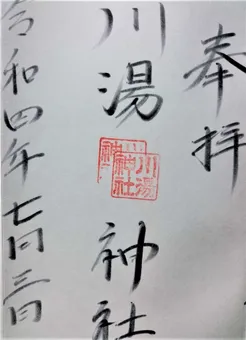 奉拝
川湯神社
川湯神社
令和四年七月三日